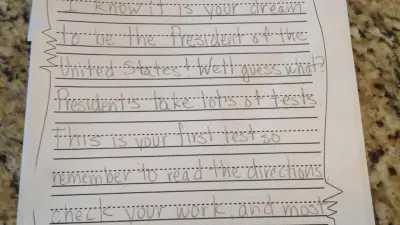 I know it is your dream
to be the President of the
United States! Well guess what?
President's take lots of tests
This is your first test so
remember to read the directions,
check your work, and most